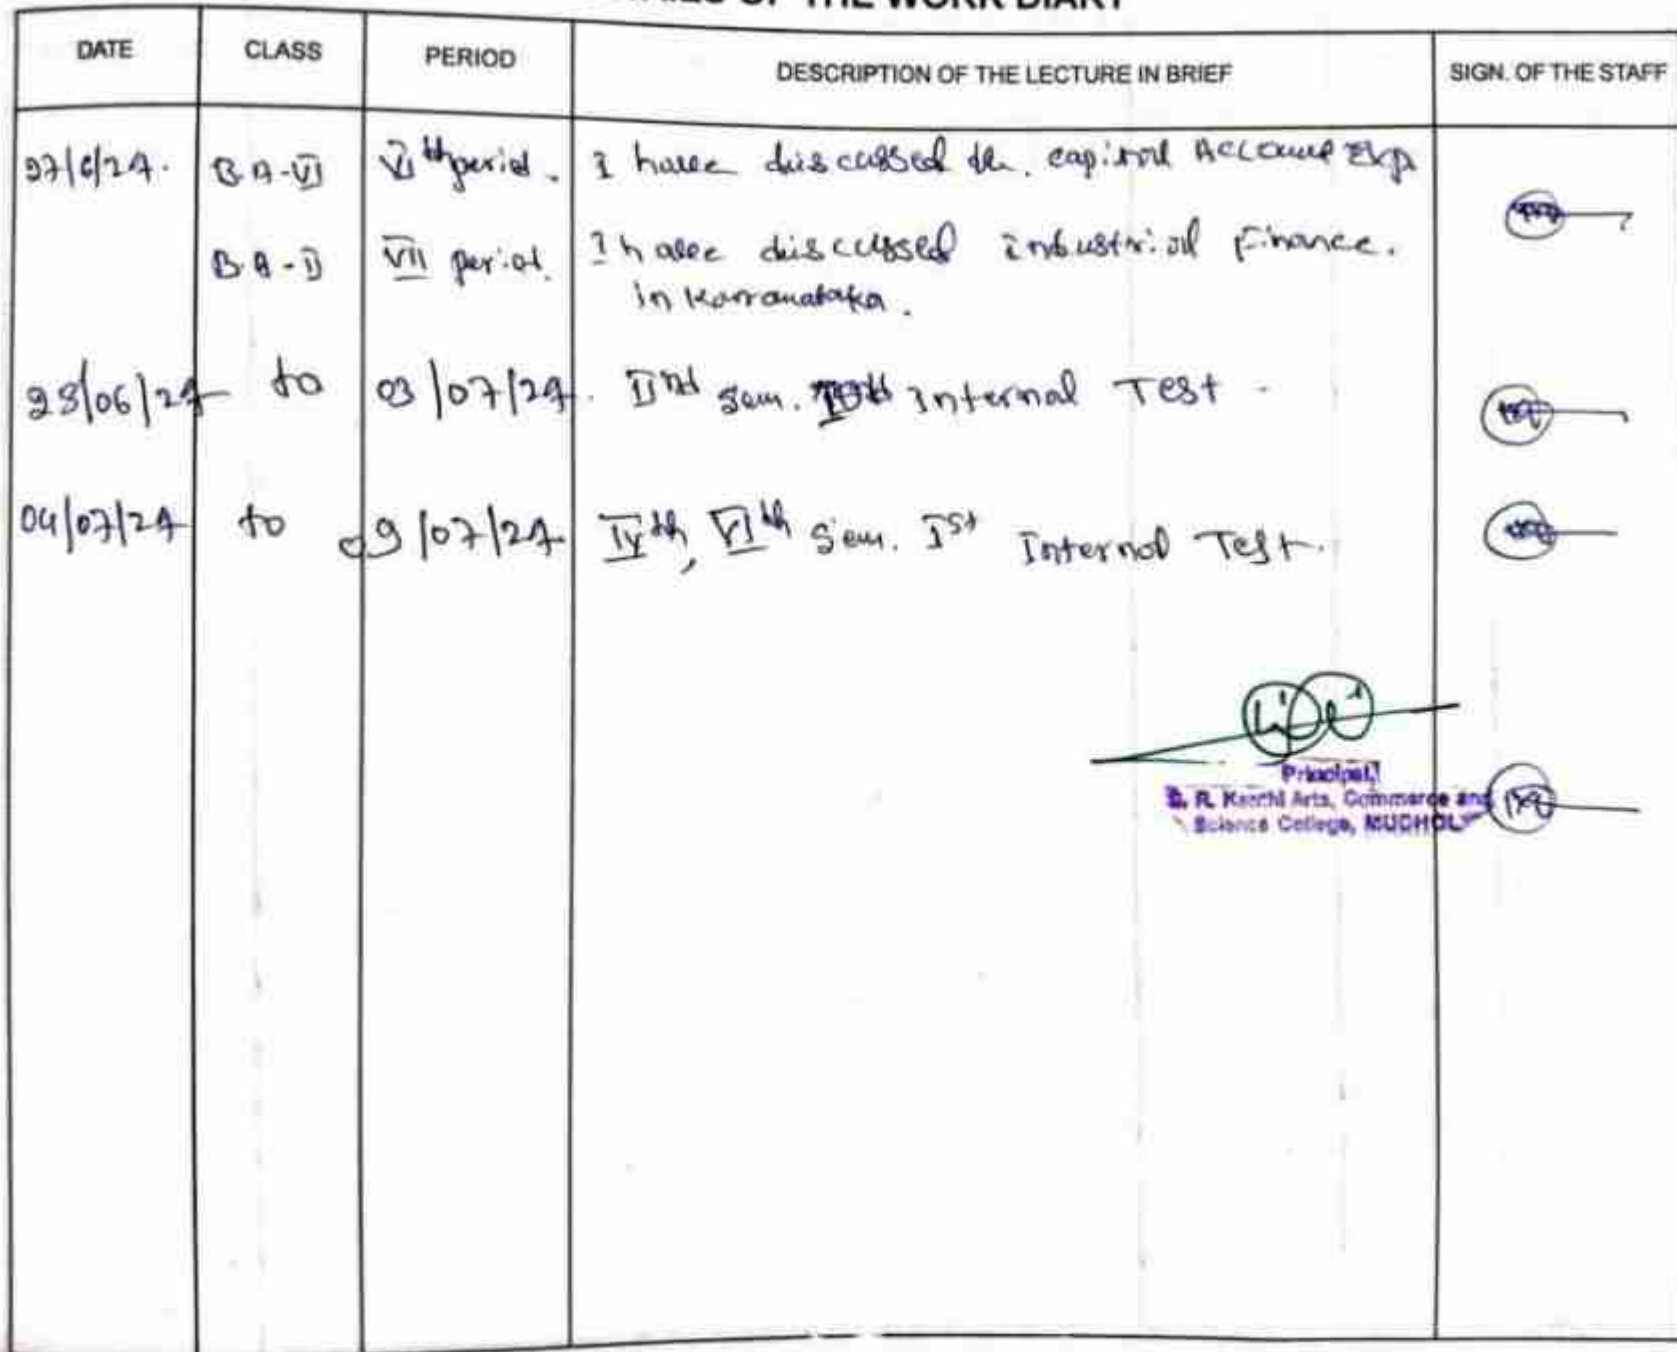 OF THE WORK DIARY
DATE CLASS PERIOD DESCRIPTION OF THE LECTURE IN BRIEF SIGN. OF THE STAFF
27/6/24. BA-VI VIth period. I have discussed the. capital Account Exp
BA-II VII period. I have discussed industrial Finance.
in Karranataka.
28/06/24 to 03/07/24. IInd Sem. Internal Test.
04/07/24 to 09/07/24 IVth, VIth Sem. Ist Internal Test.
Principal,
R. Kanthi Arts, Commerce and
Science College, MUDHOL